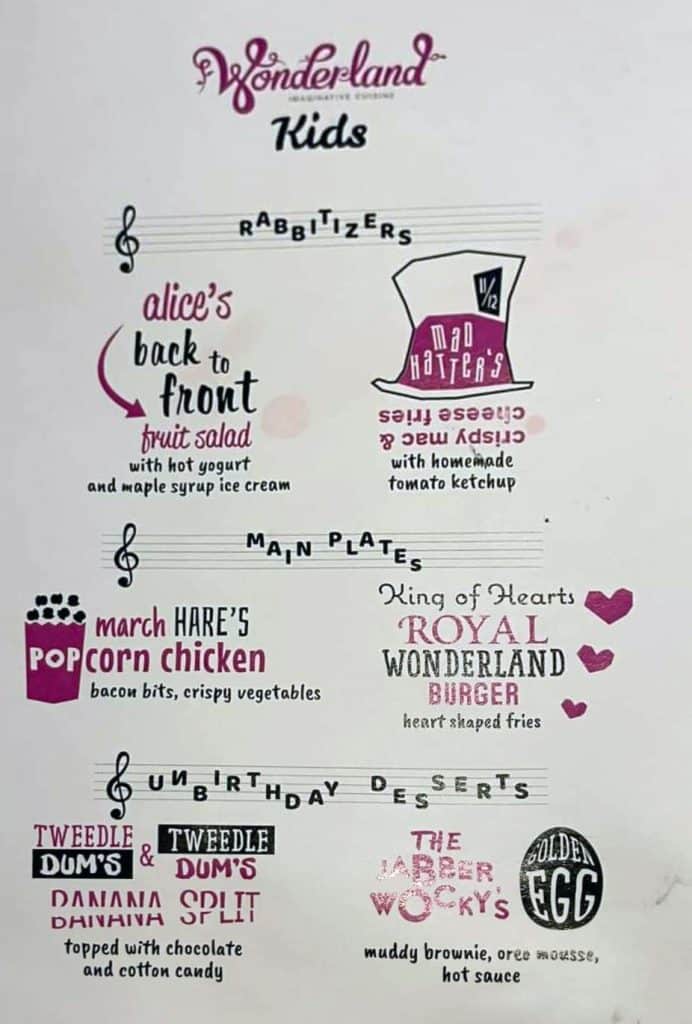 Wonderland
IMAGINATIVE CUISINE
Kids
RABBITIZERS
alice's
back to
front
fruit salad
with hot yogurt
and maple syrup ice cream
11/12
MAD
HATTER'S
crispy mac &
cheese fries
with homemade
tomato ketchup
MAIN PLATES
march HARE'S
POPcorn chicken
bacon bits, crispy vegetables
King of Hearts
ROYAL
WONDERLAND
BURGER
heart shaped fries
UNBIRTHDAY DESSERTS
TWEEDLE
DUM'S
&
TWEEDLE
DUM'S
BANANA SPLIT
topped with chocolate
and cotton candy
THE
JABBER
WOCKY'S
GOLDEN
EGG
muddy brownie, oreo mousse,
hot sauce